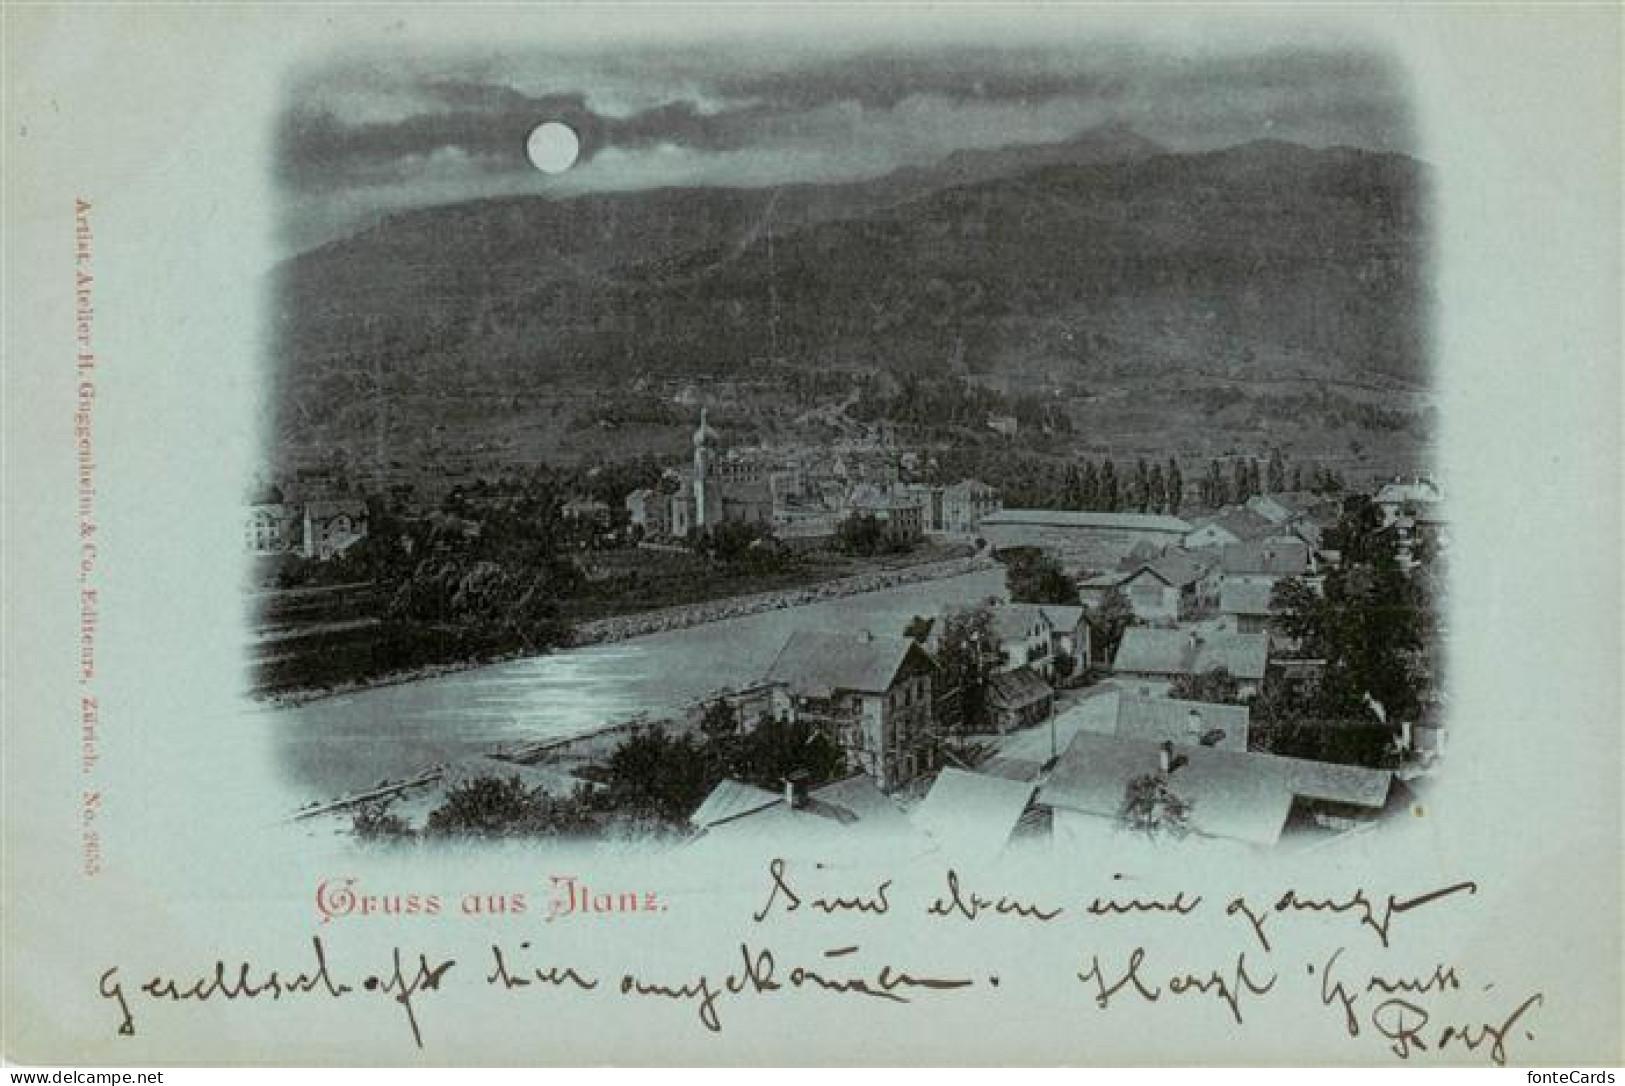 Artist. Atelier H. Guggenheim & Co., Editeurs, Zürich. No. 2655
Gruss aus Ilanz.
Sind eben eine ganze
Gesellschaft hier angekommen. Herzl Gruss.
website: www.delcampe.net
fonteCards